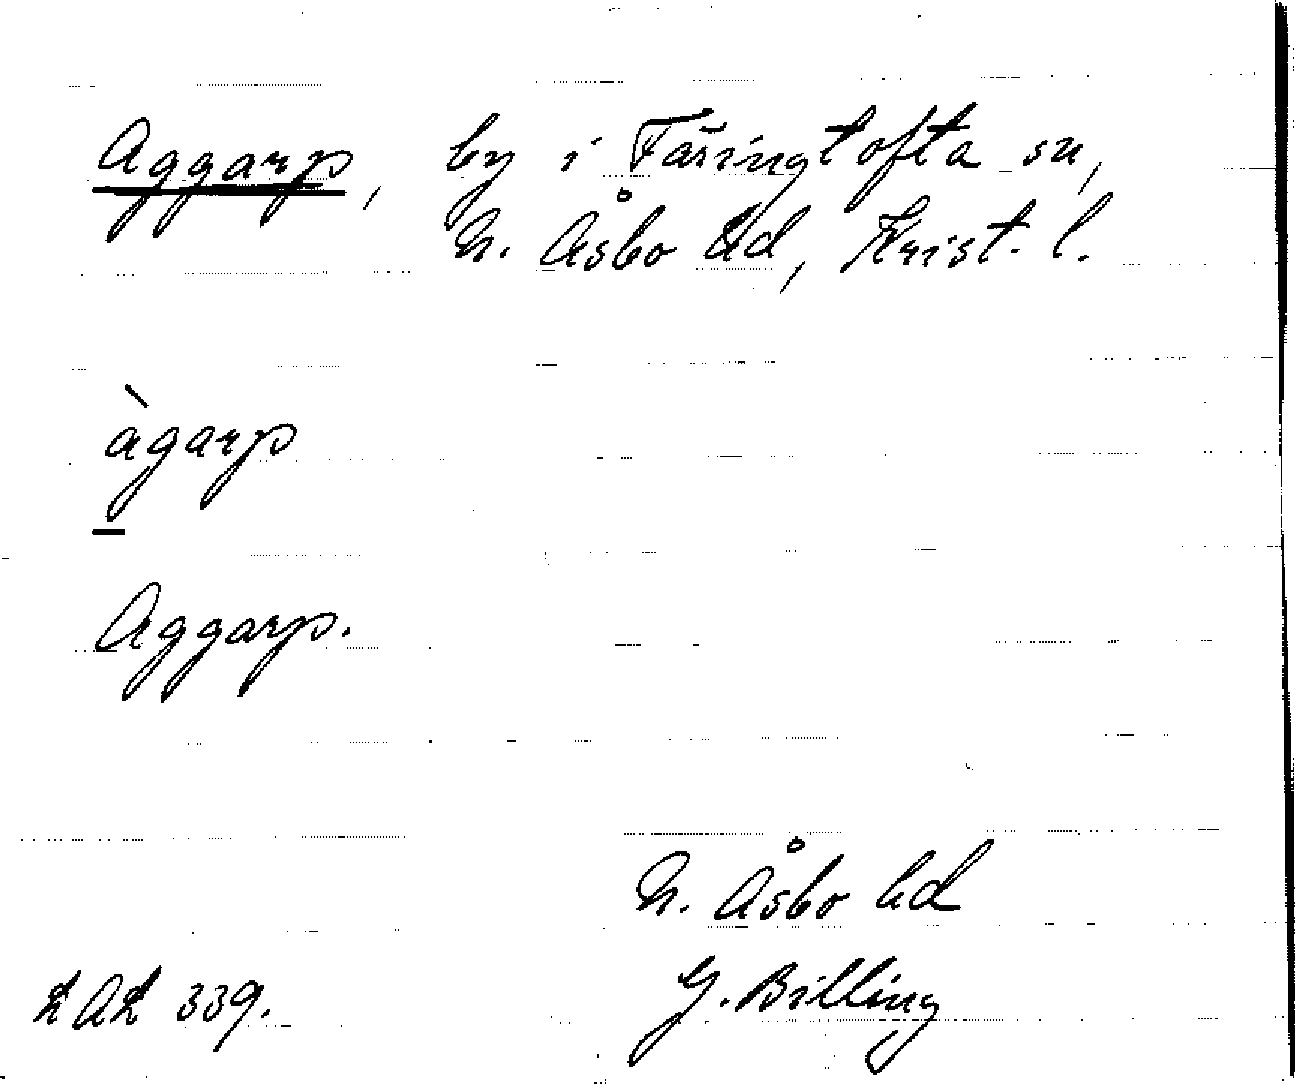 Aggarp, by i Färingtofta sn,
N. Åsbo hd, Krist. l.
àgarp
Aggarp.
N. Åsbo hd
LAL 339. G. Billing